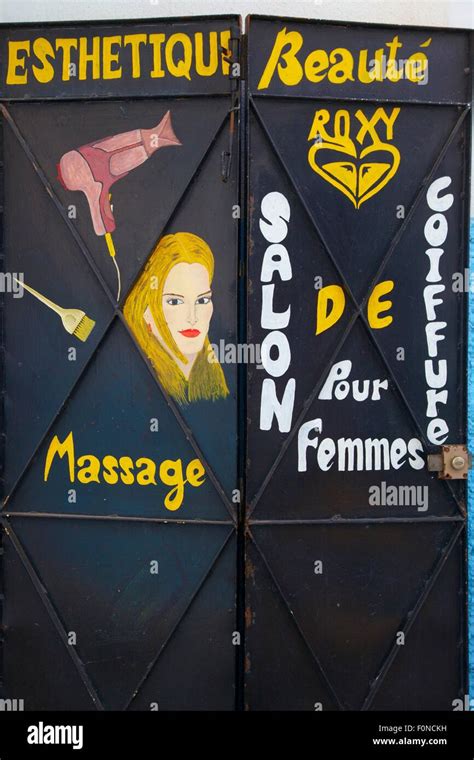 ESTHETIQUE
Beauté
ROXY
SALON
DE
COIFFURE
Pour
Femmes
Massage
alamy stock photo
a
alamy
Image ID: F0NCKH
www.alamy.com